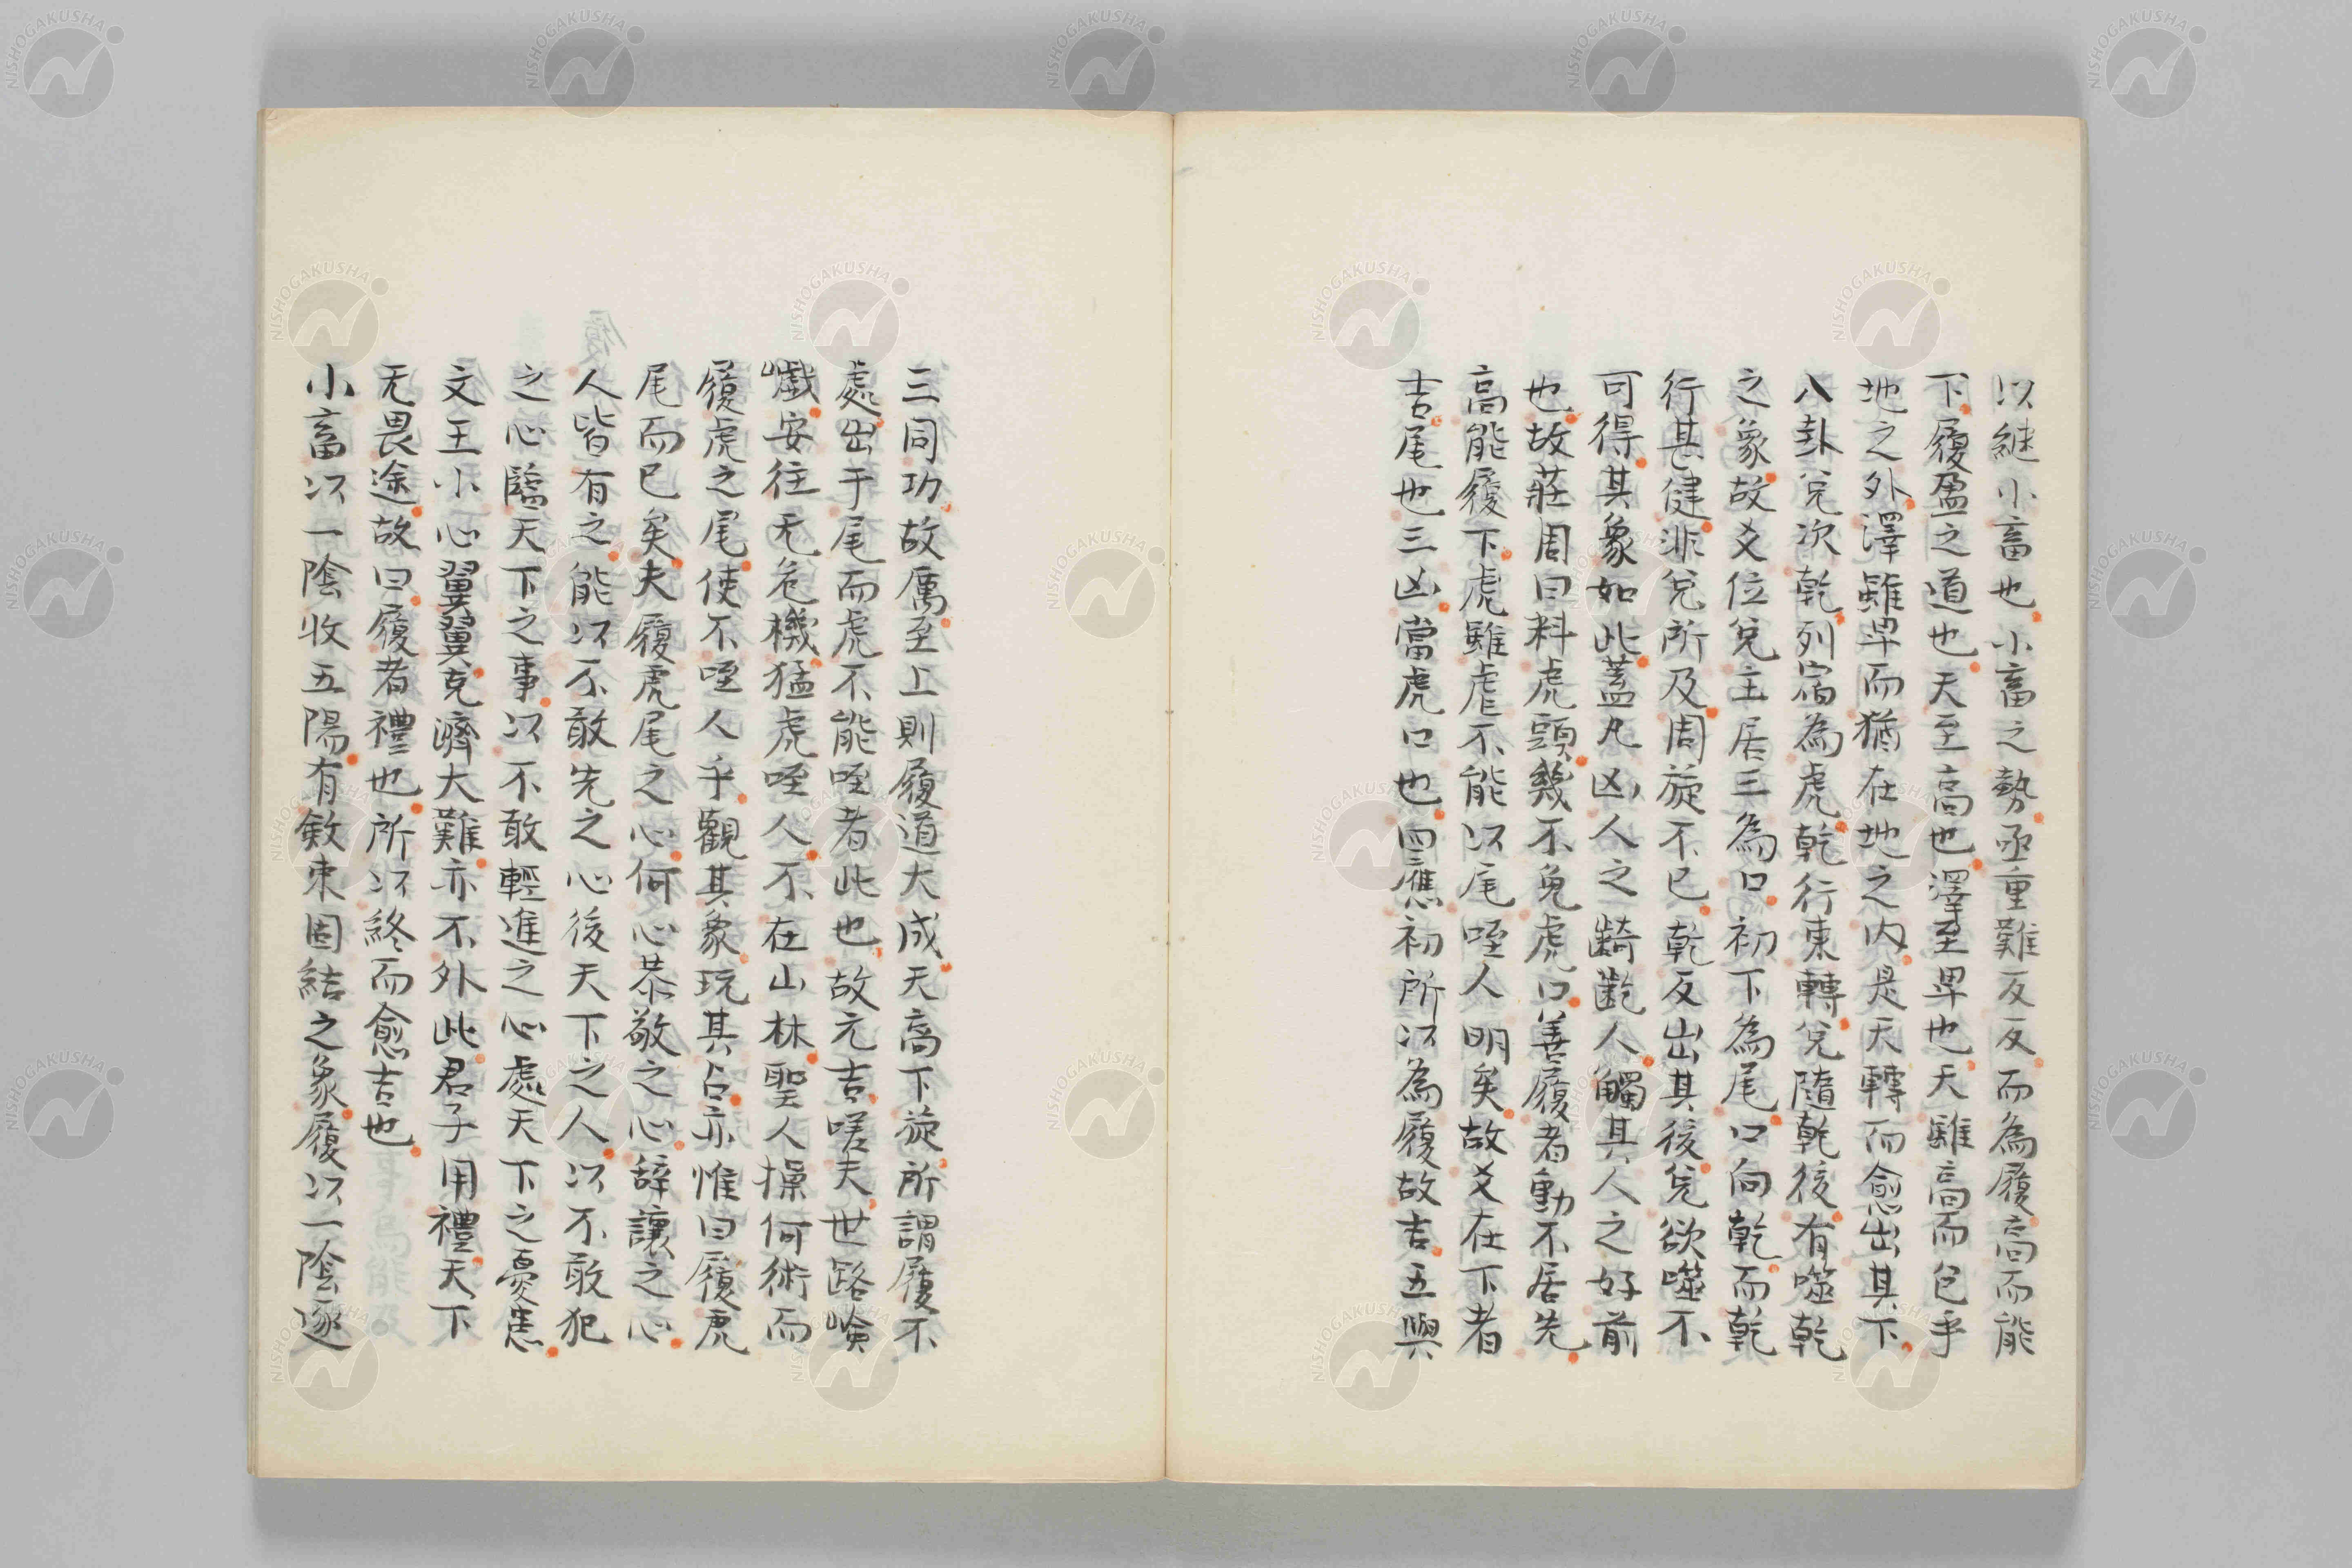 以継小畜也小畜之勢亟重難反反而為履高而能
下履盈之道也天至高也澤至卑也天雖高而包乎
地之外澤雖卑而猶在地之内是天轉而愈出其下
八卦兌次乾列宿為虎乾行東轉兌隨乾後有噬乾
之象故爻位兌主居三為口初下為尾口向乾而乾
行甚健非兌所及周旋不已乾反出其後兌欲噬不
可得其象如此蓋凡凶人之齮齕人觸其人之好前
也故莊周曰料虎頭幾不免虎口善履者動不居先
高能履下虎雖虐不能以尾咥人明矣故爻在下者
吉尾也三凶當虎口也四應初所以為履故吉五與
三同功故厲至上則履道大成天高下旋所謂履不
處出于尾而虎不能咥者此也故元吉嗟夫世路嶮
巇安往无危機猛虎咥人不在山林聖人操何術而
履虎之尾使不咥人乎觀其象玩其占亦惟曰履虎
尾而已矣夫履虎尾之心何心恭敬之心辭讓之心
人皆有之能以不敢先之心後天下之人以不敢犯
之心臨天下之事以不敢輕進之心處天下之憂患
文王小心翼翼克濟大難亦不外此君子用禮天下
无畏途故曰履者禮也所以終而愈吉也
小畜以一陰收五陽有斂束固結之象履以一陰逐
NISHOGAKUSHA